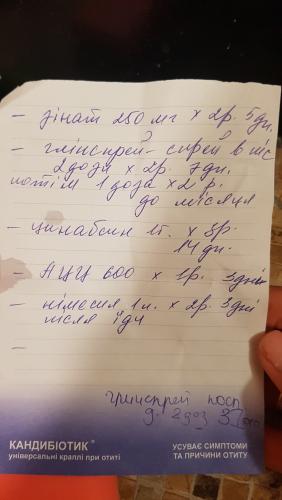 - зінат 250 мг х 2р. 5дн.
- глінспрей - спрей в ніс
2 дози х 2р. 7дн.
потім 1 доза х 2 р.
до місяця
- цинабсин 1т. х 3р.
14 дн.
- АЦЦ 600 х 1р. 5днів
- німесил 1п. х 2р. 3дні
після їди
-
2 доз
КАНДИБІОТИК®
універсальні краплі при отиті
УСУВАЄ СИМПТОМИ
ТА ПРИЧИНИ ОТИТУ